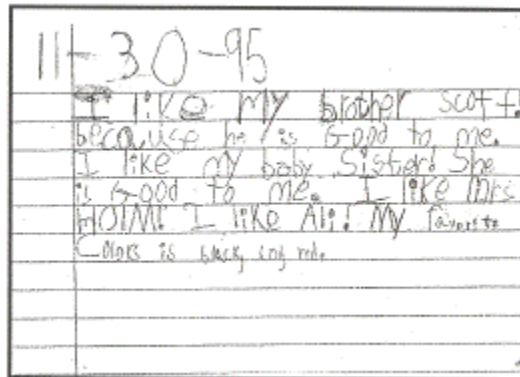 11-30-95
I like My brother scott.
because he is Good to me.
I like my baby Sister! She
is Good to me. I like Mrs
HOIM! I like Ali! My favorite
Colors is black, and red.